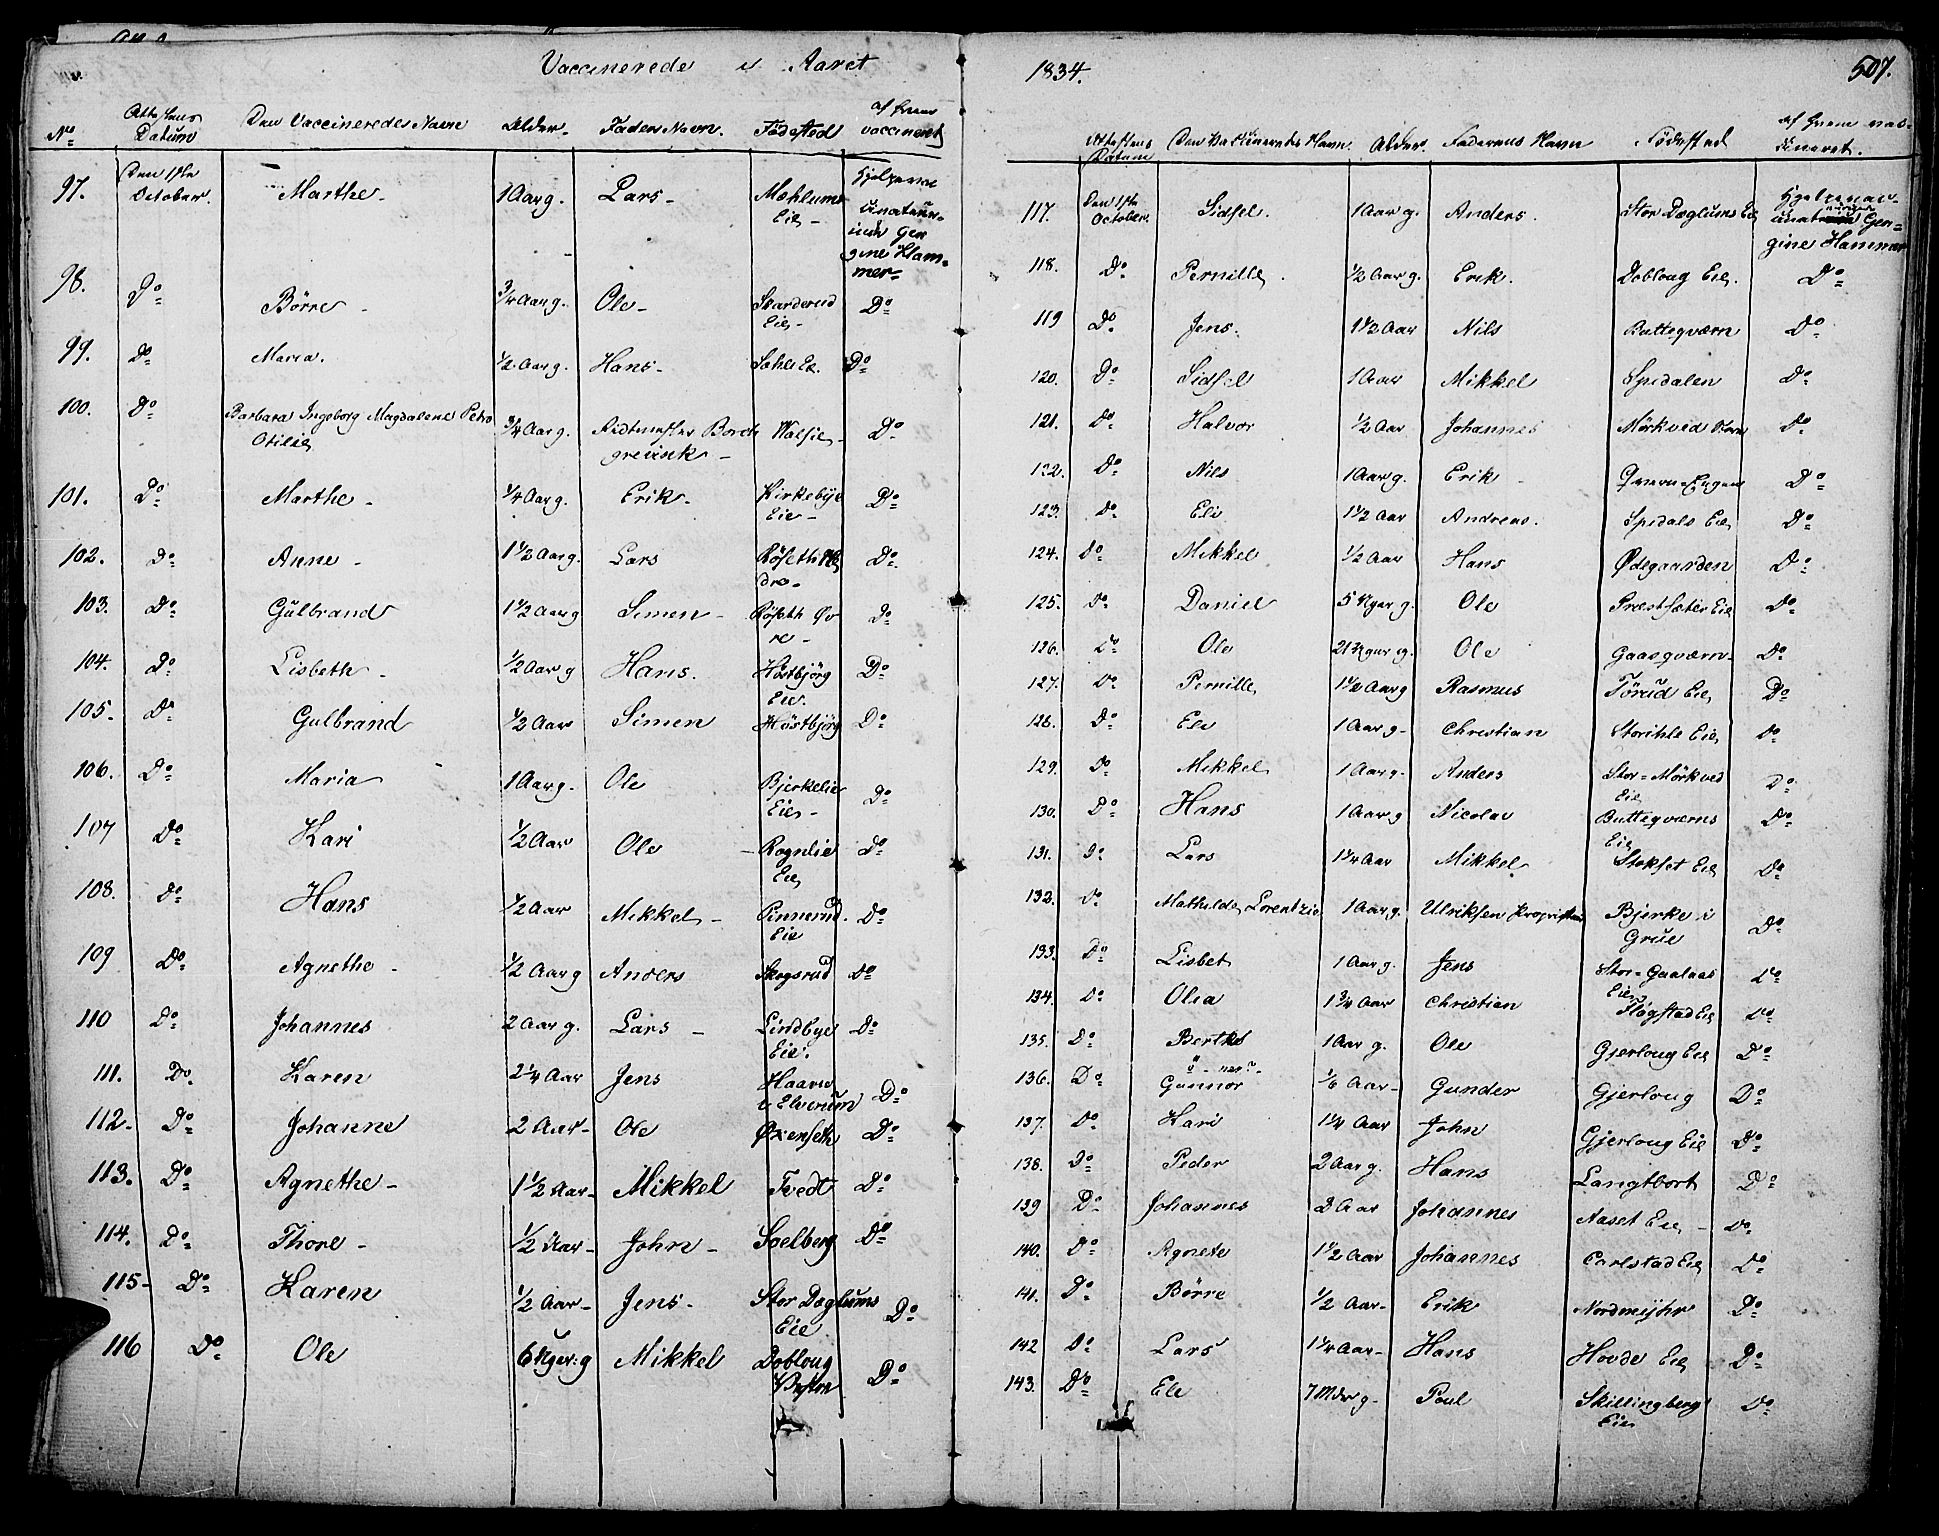 Vaccinerede i Aaret
No Attestens Datum Den Vaccineredes Navn Alder Faders Navn. Födested af hvem vaccineret
97. Den 1ste October. Marthe 1 Aarg. Lars Mæhlums Eie Hjelpevaccinateurinde Gergine Hammer
98. Do Börre ¾ Aarg. Ole Skarderud Eie Do
99. Do Maria. ½ Aarg. Hans Do
100. Do Barbara Ingeborg Magdalene Petra Otilie ¾ Aarg. Ridtmester Borchgrevink Do
101. Do Marthe ¼ Aarg. Erik Kirkebye Eie Do
102. Do Anne 1½ Aarg. Lars Röseth Do
103. Do Gulbrand 1½ Aarg Simen Röseth Øvre Do
104. Do Lisbeth ½ Aarg Hans. Höstbjörg Eie. Do
105. Do Gulbrand ½ Aar Simen Höstbjörg Do
106. Do Maria 1 Aarg. Ole Bjerkelie Eie Do
107 Do Kari ½ Aar Ole Rognlie Eie Do
108. Do Hans ½ Aar Mikkel Pinnerud Eie Do
109 Do Agnethe ½ Aarg Anders Skogsrud Do
110 Do Johannes 2 Aarg. Lars Lindbye Eie. Do
111. Do. Karen 2¼ Aar Jens i Elverum Do
112. Do Johanne 2 Aar Ole Øxenseth Do
113. Do Agnethe 1½ Aar Mikkel Tvedt Do
114. Do Thore ½ Aar John Soelberg Do
115 Do Karen ½ Aar Jens Stor Dæglums Eie Do
116 Do Ole 6 Uger:g Mikkel Dobloug Do
1834.
507.
Attestens Datum Den Vaccineredes Navn. Alder. Faderens Navn Födested af hvem vaccineret.
117. Den 1ste October. Sidsel. 1 Aarg. Anders. Stor Dæglums Eie Gergine Hammer
118. Do Pernille. ½ Aarg. Erik. Dobloug Eie. Do
119 Do Jens. 1½ Aar Nils Butteqværn Do
120. Do Sidsel 1 Aar Mikkel Spidalen Do
121. Do Halvor ½ Aar Johannes Mörkved Do
122. Do Nils 1 Aarg. Erik Do
123. Do Eli 1½ Aar Andreas. Spidals Eie Do
124. Do Mikkel ½ Aar Hans Ødegaarden Do
125. Do Daniel 5 Uger g. Ole Præstsæter Eie Do
126. Do Ole Ole Gaasqværn Do
127. Do Pernille 1½ Aarg Rasmus Törud Eie Do
128. Do Eli 1 Aarg Christian Storihle Eie Do
129. Do Mikkel 1 Aarg. Anders Stor=Mörkved Eie Do
130. Do Hans 1 Aarg Nicolai Butteqværns Eie Do
131. Do Lars 1¼ Aar Mikkel. Stokset Eie Do
132. Do Mathilde Lorentzie 1 Aarg. Ulriksen Bjerke i Grue Do
133. Do Lisbet 1 Aarg. Jens Stor=Gaalaas Eie Do
134. Do Olia 1¾ Aar Christian Flogstad Eie Do
135. Do Berthe 1 Aar g. Ole Gjerloug Eie Do
136. Do Gunnor Aar Gunder Gjerloug Do
137. Do Kari 1¼ Aar John Gjerloug Eie Do
138. Do Peder 2 Aarg. Hans Langtbort Do
139 Do Johannes 3 Aar Johannes Aaset Eie Do
140. Do Agnete 1½ Aar Johannes Carlstad Eie Do
141. Do Börre ½ Aar Erik Nordmyhr Do
142 Do Lars 1¼ Aar Hans Hovde Eie Do
143. Do Ele 7 Mdr g. Poul Skillingberg Eie Do